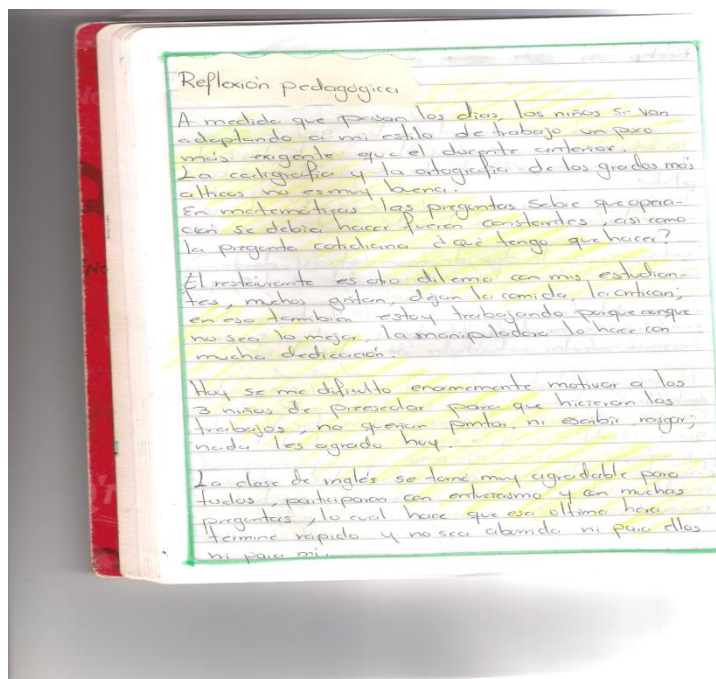 Reflexión pedagógica
A medida que pasan los dias, los niños se van
adaptando a mi estilo de trabajo un poco
más exigente que el docente anterior.
La caligrafia y la ortografia de los grados más
alticos no es muy buena.
En matematicas las preguntas sobre que opera-
cion se debia hacer fueron constantes, asi como
la pregunta cotidiana ¿ que tengo que hacer?
El restaurante es otro dilema con mis estudian-
tes, muchos gritan, dejan la comida, la critican;
en eso tambien estoy trabajando porque aunque
no sea lo mejor la manipuladora lo hace con
mucha dedicación.
Hoy se me dificulto enormemente motivar a los
3 niños de preescolar para que hicieran los
trabajos, no querian pintar, ni escribir, rasgar;
nada les agrado hoy.
La clase de inglés se torna muy agradable para
todos, participaron con entusiasmo y con muchas
preguntas, lo cual hace que esa ultima hora
termine rapido y no sea aburrida ni para ellos
ni para mi.